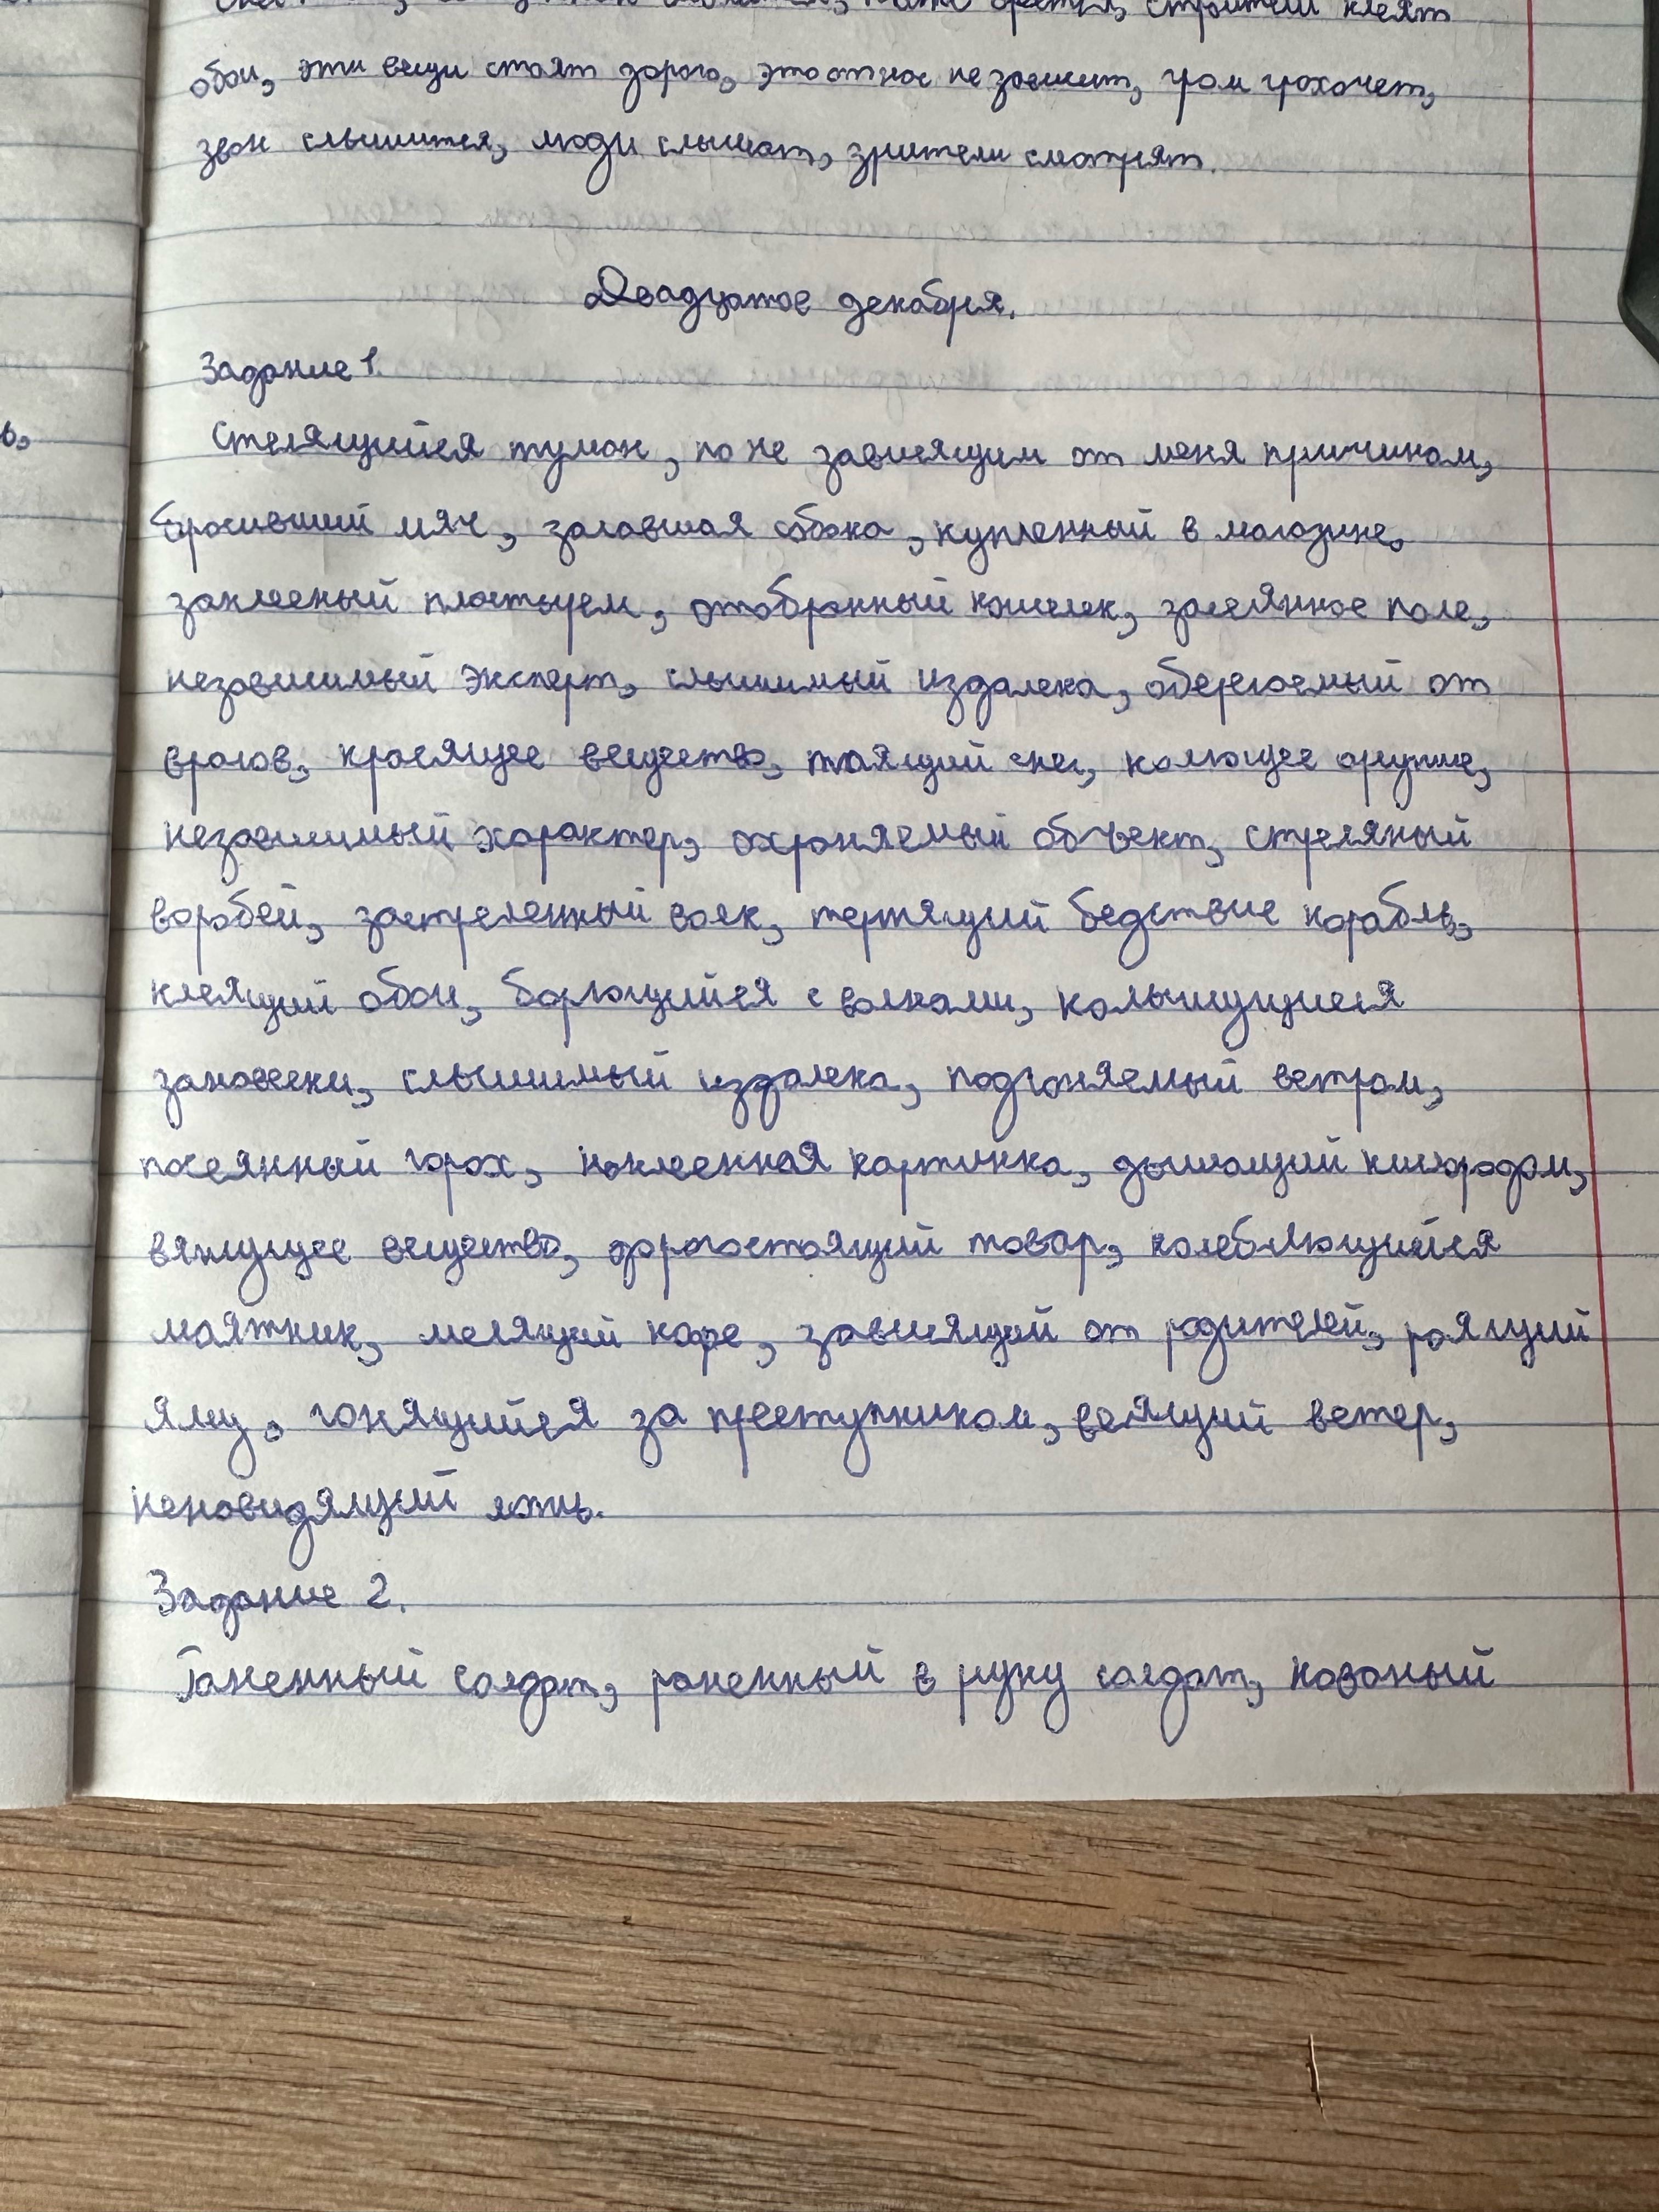 строители клеят
обои, эти вещи стоят дорого, это от нас не зависит, гром грохочет,
звон слышится, люди слышат, зрители смотрят.
Двадцатое декабря.
Задание 1.
Стелящийся туман, по не зависящим от меня причинам,
бросивший мяч, залаявшая собака, купленный в магазине,
заклееный пластырем, отобранный кошелек, засеянное поле,
независимый эксперт, слышимый издалека, оберегаемый от
врагов, красящее вещество, таящий снег, колющее оружие,
независимый характер, охраняемый объект, стреляный
воробей, застреленный волк, терпящий бедствие корабль,
клеящий обои, борющийся с волками, колышущиеся
занавески, слышимый издалека, подгоняемый ветром,
посеянный горох, наклеенная картинка, дышащий кислородом,
вяжущее вещество, дорогостоящий товар, колеблющийся
маятник, мелящий кофе, зависящий от родителей, роящий
яму, гонящийся за преступником, веящий ветер,
ненавидящий лгать.
Задание 2.
Раненный солдат, раненный в руку солдат, кованый